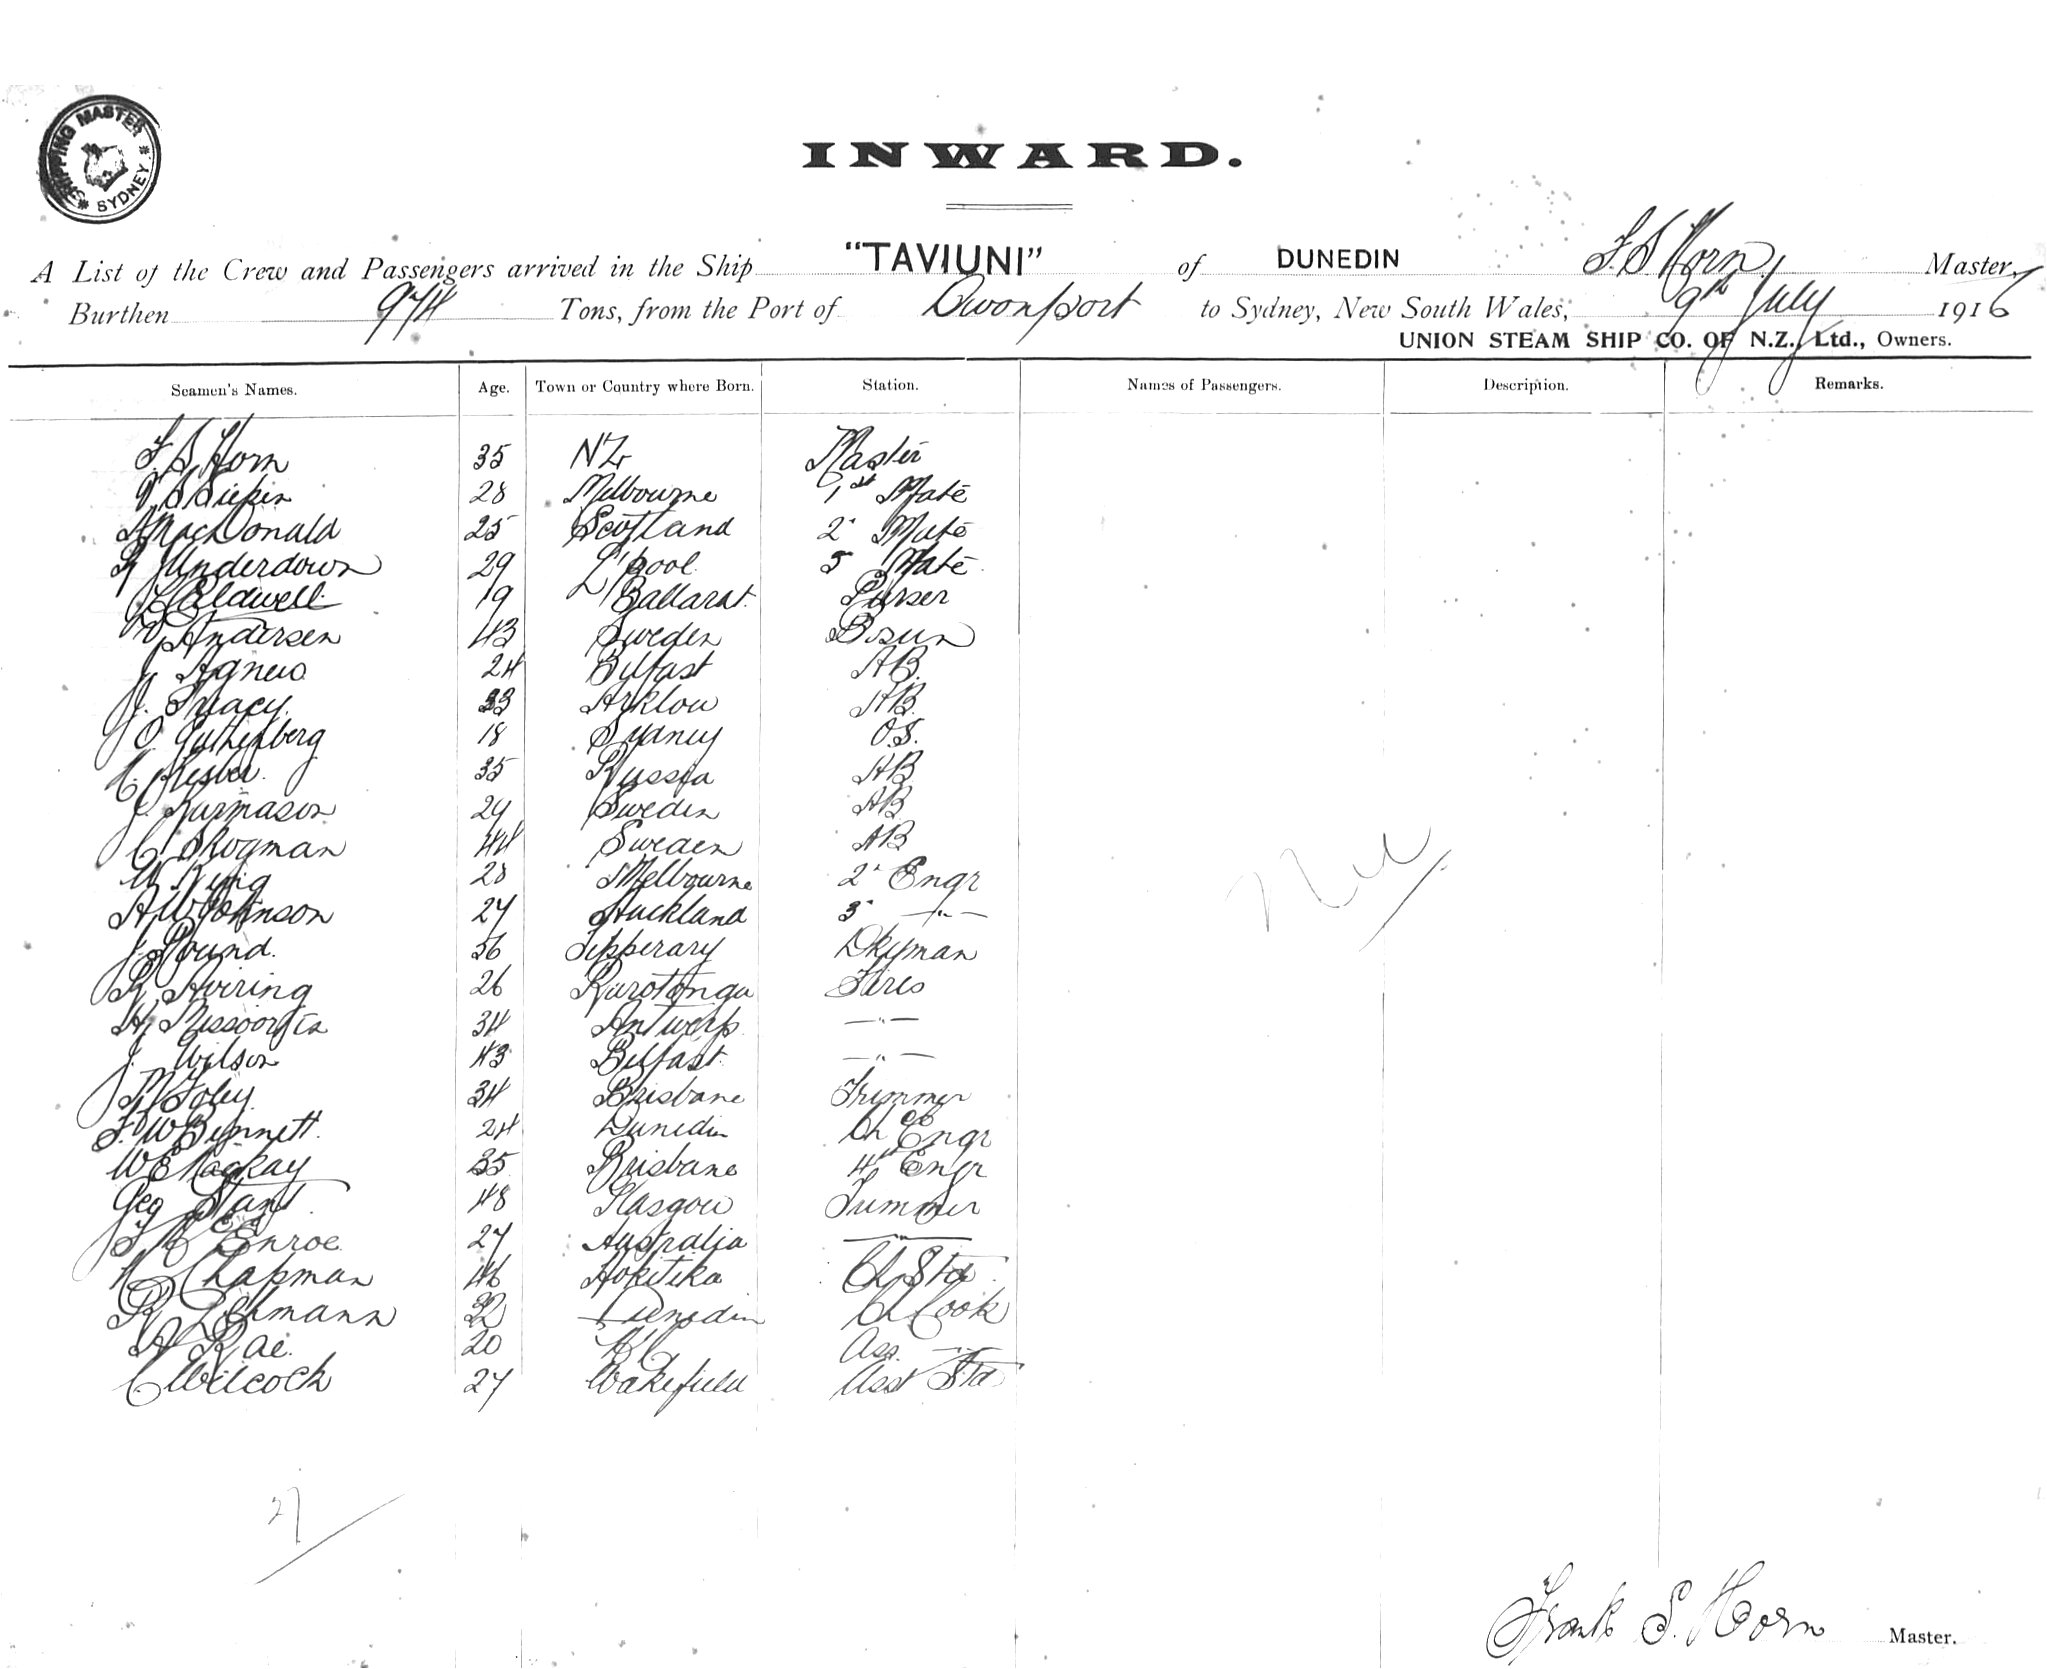 SHIPPING MASTER
* SYDNEY *
INWARD.
A List of the Crew and Passengers arrived in the Ship "TAVIUNI" of DUNEDIN F. S. Horn Master,
Burthen 974 Tons, from the Port of Devonport to Sydney, New South Wales, 9th July 1916
UNION STEAM SHIP CO. OF N.Z., Ltd., Owners.
Seamen's Names. Age. Town or Country where Born. Station. Names of Passengers. Description. Remarks.
F. S. Horn 35 NZ Master
28 Melbourne 1st Mate
A MacDonald 25 Scotland 2" Mate
Underdown 29 L'pool 3" Mate
Caldwell 19 Ballarat Purser
Andersen 43 Sweden Bosun
J. Agnew 24 Belfast AB
J. Tracy 33 Arklow AB
O. Guthenberg 18 Sydney O.S.
35 Russia AB
J. 27 Sweden AB
C. Skogman 44 Sweden AB
W. King 28 Melbourne 2" Engr
A W Johnson 27 Auckland 3" —"—
J. Pound 56 Tipperary Dkyman
R. 26 Rarotonga Fires
34 Antwerp —"—
J. Wilson 43 Belfast —"—
M Foley 34 Brisbane Trimmer
F. W Bennett 24 Dunedin Ch Engr
W E Mackay 35 Brisbane 4th Engr
Geo Stant 48 Glasgow Trimmer
27 Australia —"—
Chapman 46 Hokitika Ch Std
R Lehmann 32 Dunedin Ch Cook
A Rae 20 Ass. —"—
C Wilcock 27 Wakefield Asst Std
Nil
27
Frank S. Horn Master.